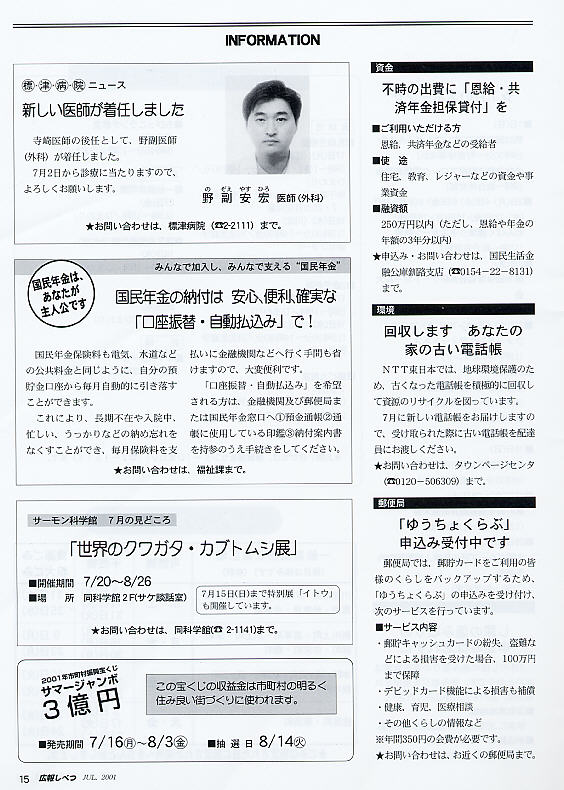 INFORMATION
標・津・病・院 ニュース
新しい医師が着任しました
寺崎医師の後任として、野副医師
(外科)が着任しました。
7月2日から診療に当たりますので、
よろしくお願いします。
の ぞえ やす ひろ
野 副 安 宏 医師(外科)
★お問い合わせは、標津病院(☎2-2111)まで。
国民年金は、
あなたが
主人公です
みんなで加入し、みんなで支える“国民年金”
国民年金の納付は 安心、便利、確実な
「口座振替・自動払込み」で!
国民年金保険料も電気、水道など
の公共料金と同じように、自分の預
貯金口座から毎月自動的に引き落す
ことができます。
これにより、長期不在や入院中、
忙しい、うっかりなどの納め忘れを
なくすことができ、毎月保険料を支
払いに金融機関などへ行く手間も省
けますので、大変便利です。
「口座振替・自動払込み」を希望
される方は、金融機関及び郵便局ま
たは国民年金窓口へ①預金通帳②通
帳に使用している印鑑③納付案内書
を持参のうえ手続きをしてください。
★お問い合わせは、福祉課まで。
サーモン科学館 7月の見どころ
「世界のクワガタ・カブトムシ展」
■開催期間 7/20〜8/26
■場 所 同科学館2F(サケ談話室)
7月15日(日)まで特別展「イトウ」
も開催しています。
★お問い合わせは、同科学館(☎2-1141)まで。
2001年市町村振興宝くじ
サマージャンボ
3億円
この宝くじの収益金は市町村の明るく
住み良い街づくりに使われます。
■発売期間 7/16㊊〜8/3㊎ ■抽選日 8/14㊋
資金
不時の出費に「恩給・共
済年金担保貸付」を
■ご利用いただける方
恩給、共済年金などの受給者
■使 途
住宅、教育、レジャーなどの資金や事
業資金
■融資額
250万円以内(ただし、恩給や年金の
年額の3年分以内)
★申込み・お問い合わせは、国民生活金
融公庫釧路支店(☎0154-22-8131)
まで。
環境
回収します あなたの
家の古い電話帳
NTT東日本では、地球環境保護のた
め、古くなった電話帳を積極的に回収し
て資源のリサイクルを図っています。
7月に新しい電話帳をお届けしますの
で、受け取られた際に古い電話帳を配達
員にお渡しください。
★お問い合わせは、タウンページセンタ
(☎0120-506309)まで。
郵便局
「ゆうちょくらぶ」
申込み受付中です
郵便局では、郵貯カードをご利用の皆
様のくらしをバックアップするため、
「ゆうちょくらぶ」の申込みを受け付け、
次のサービスを行っています。
■サービス内容
・郵貯キャッシュカードの紛失、盗難な
どによる損害を受けた場合、100万円
まで保障
・デビッドカード機能による損害も補償
・健康、育児、医療相談
・その他くらしの情報など
※年間350円の会費が必要です。
★お問い合わせは、お近くの郵便局まで。
15 広報しべつ JUL. 2001